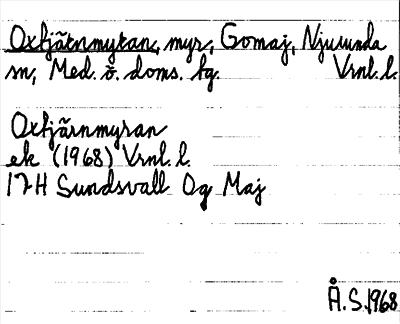 Oxtjärnmyran, myr, Gomaj, Njurunda
sn, Med. ö. doms. tg. Vrnl. l.
Oxtjärnmyran
ek (1968) Vrnl. l.
17H Sundsvall Og Maj
Å.S. 1968